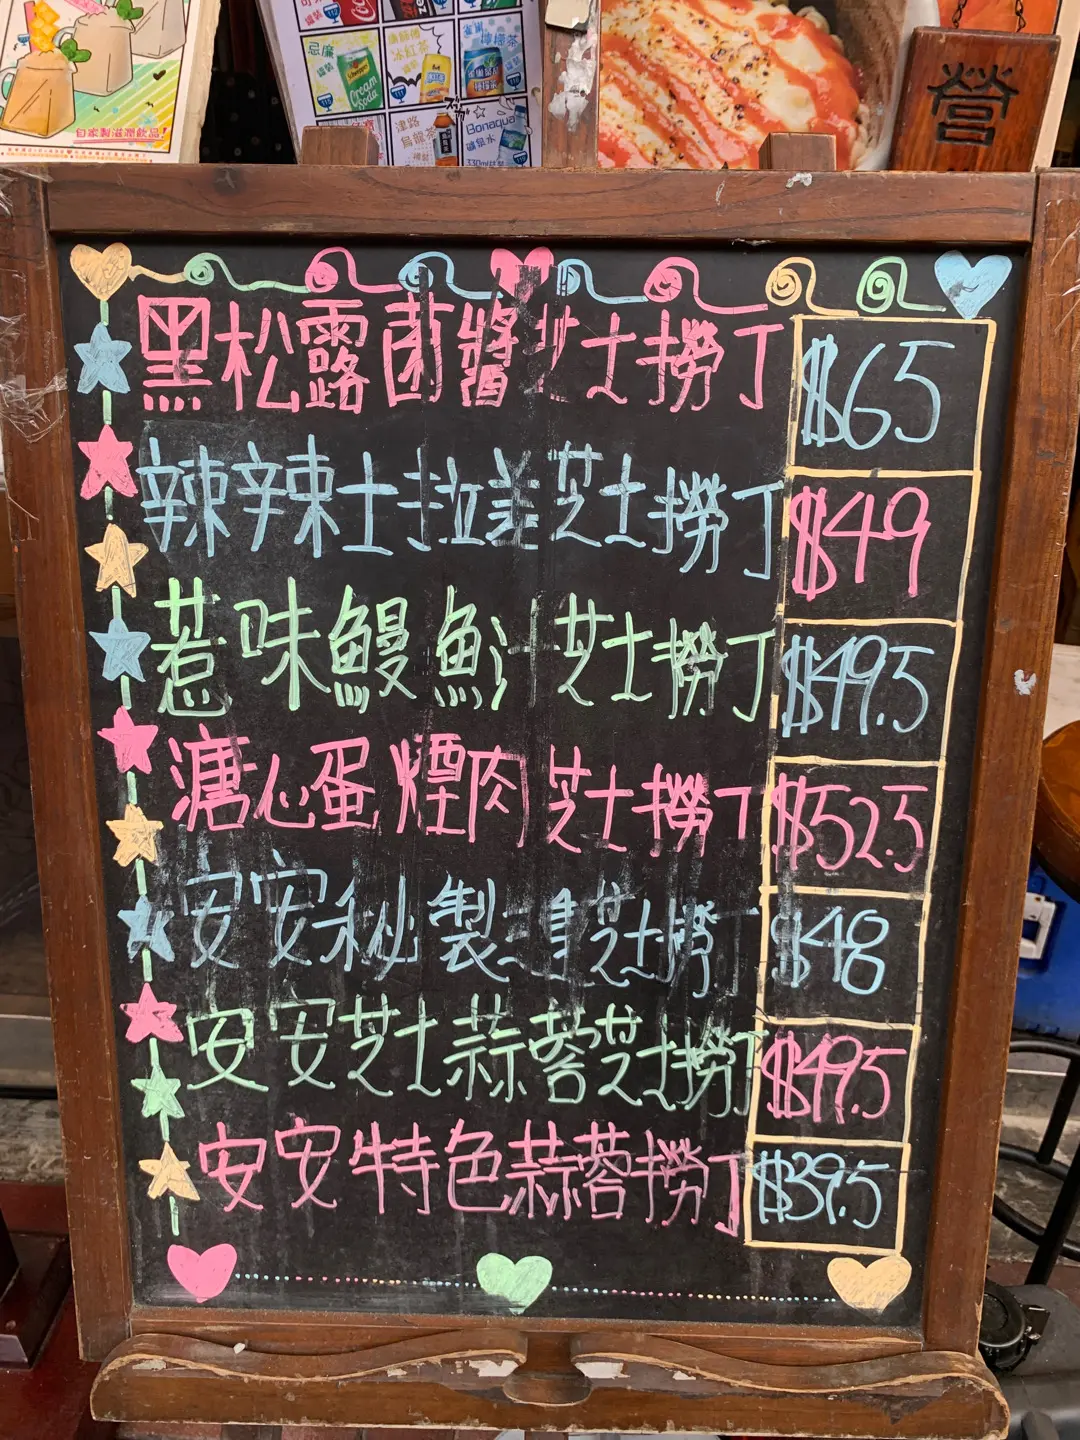 自家製滋潤飲品!
忌廉
罐裝
Schweppes
Cream
Soda
冰紅茶
罐裝
檸檬茶
罐裝
烏龍茶
Bonaqua
礦泉水
330ml
營
黑松露菌醬芝士撈丁 $65
辣辣士拉差芝士撈丁 $49
惹味鰻魚汁芝士撈丁 $49.5
溏心蛋煙肉芝士撈丁 $52.5
安安秘製芝士撈丁 $48
安安芝士蒜蓉芝士撈丁 $49.5
安安特色蒜蓉撈丁 $39.5